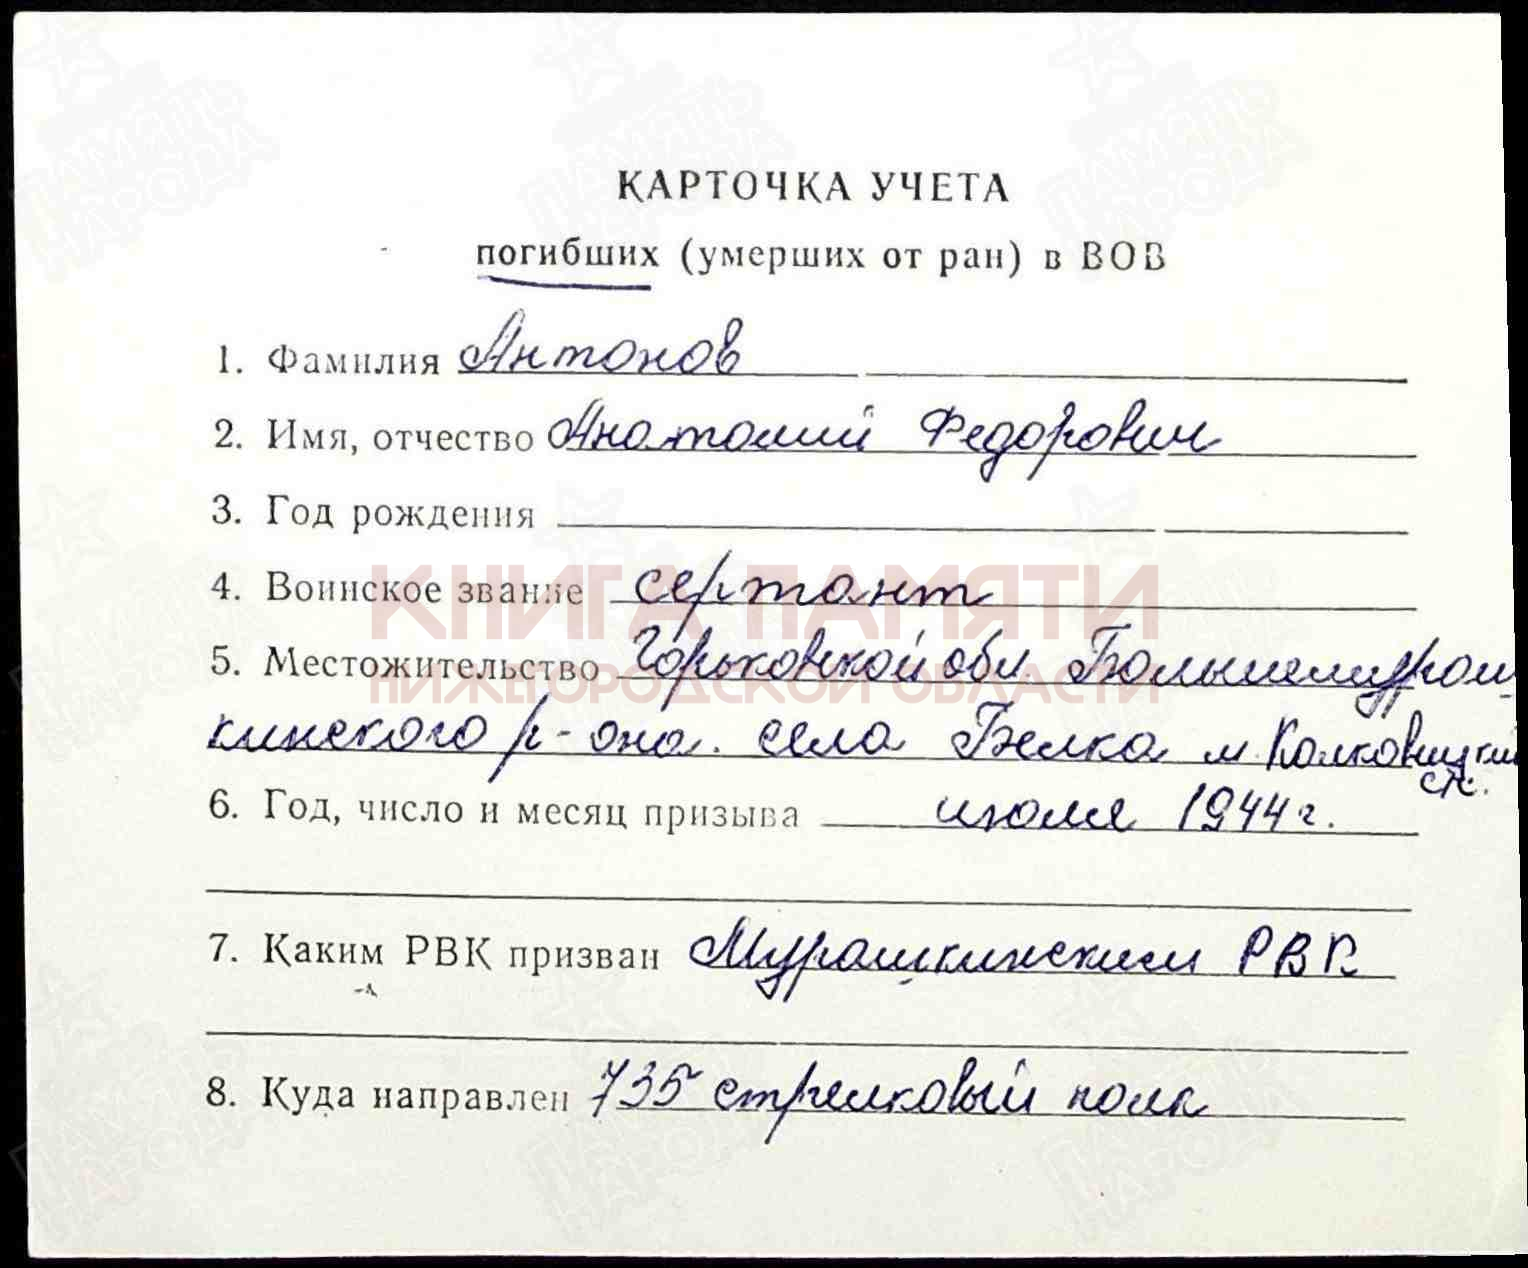 КАРТОЧКА УЧЕТА
погибших (умерших от ран) в ВОВ
1. Фамилия Антонов
2. Имя, отчество Анатолий Федорович
3. Год рождения
4. Воинское звание сержант
КНИГА ПАМЯТИ
5. Местожительство Горьковской обл. Большемураш-
НИЖЕГОРОДСКОЙ ОБЛАСТИ
кинского р-она. села Белка м.
с/с.
6. Год, число и месяц призыва июля 1944 г.
7. Каким РВК призван Мурашкинским РВК
8. Куда направлен 735 стрелковый полк
ПАМЯТЬ НАРОДА